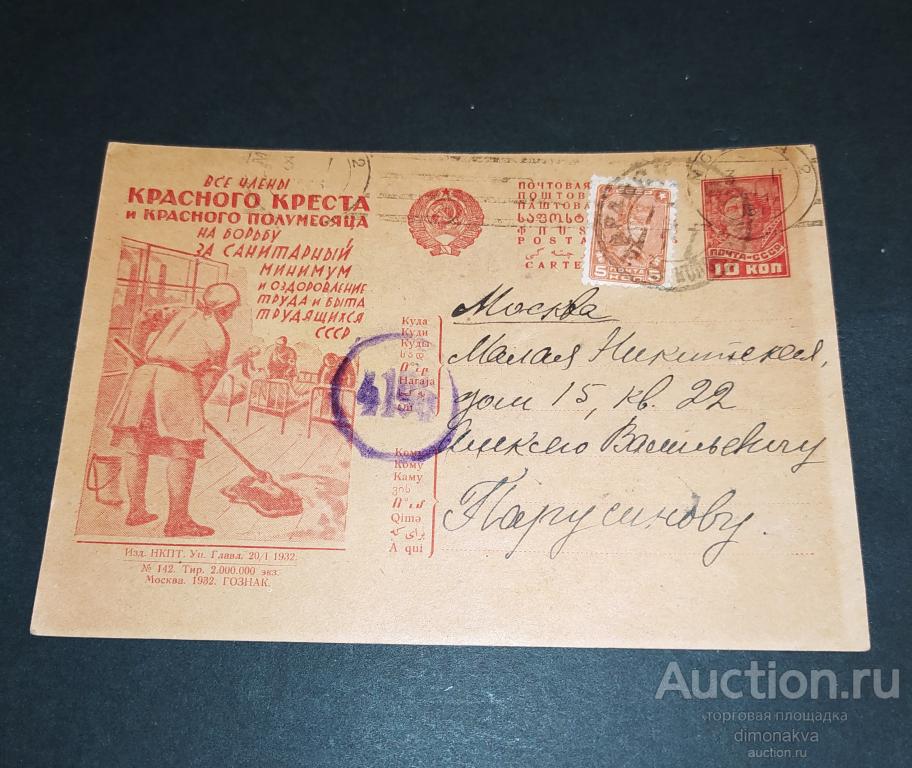 ВСЕ ЧЛЕНЫ
КРАСНОГО КРЕСТА
И КРАСНОГО ПОЛУМЕСЯЦА
НА БОРЬБУ
ЗА САНИТАРНЫЙ
МИНИМУМ
И ОЗДОРОВЛЕНИЕ
ТРУДА И БЫТА
ТРУДЯЩИХСЯ
СССР
Изд. НКПТ. Уп. Главл. 20/I 1932.
№ 142. Тир. 2.000.000 экз.
Москва. 1932. ГОЗНАК.
ПОЧТОВАЯ
ПОШТОВ
ПАШТОВА
POSTA
CARTE
5 ПОЧТА 5
ПОЧТА-СССР
10 КОП
Куда
Куди
Куды
Haraja
Où
415
Кому
Кому
Каму
Qimə
A qui
Москва
Малая Никитская,
дом 15, кв. 22
Алексею Васильевичу
Парусинову.
Auction.ru
торговая площадка
dimonakva
auction.ru